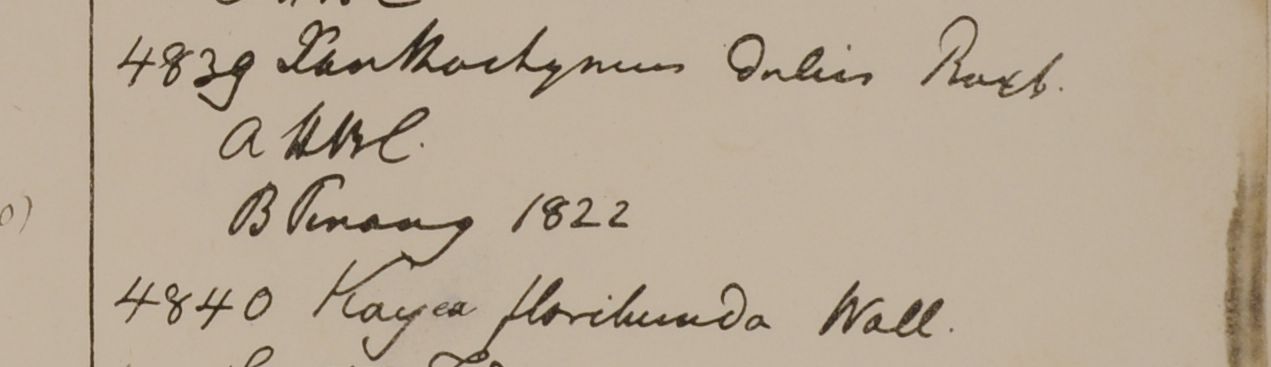 4839 Xanthochymus dulcis Roxb.
A HBC.
B Penang 1822
4840 Kayea floribunda Wall.